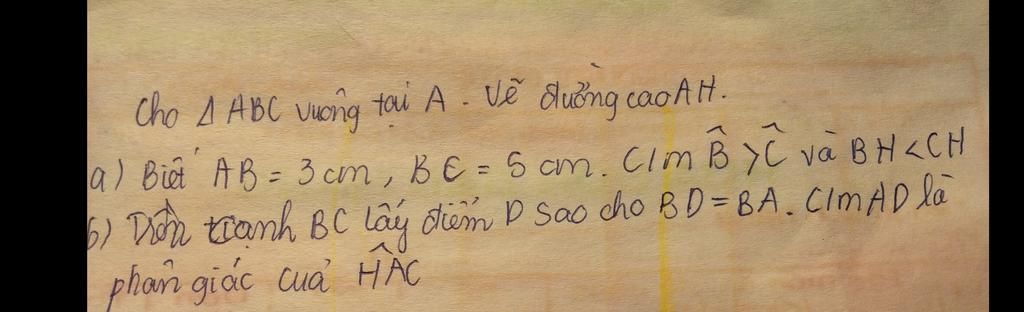 Cho Δ ABC vuông tại A. Vẽ đường cao AH.
a) Biết AB = 3 cm, BC = 5 cm. C/m B̂ > Ĉ và BH < CH
b) Trên cạnh BC lấy điểm D sao cho BD = BA. C/m AD là
phân giác của HÂC